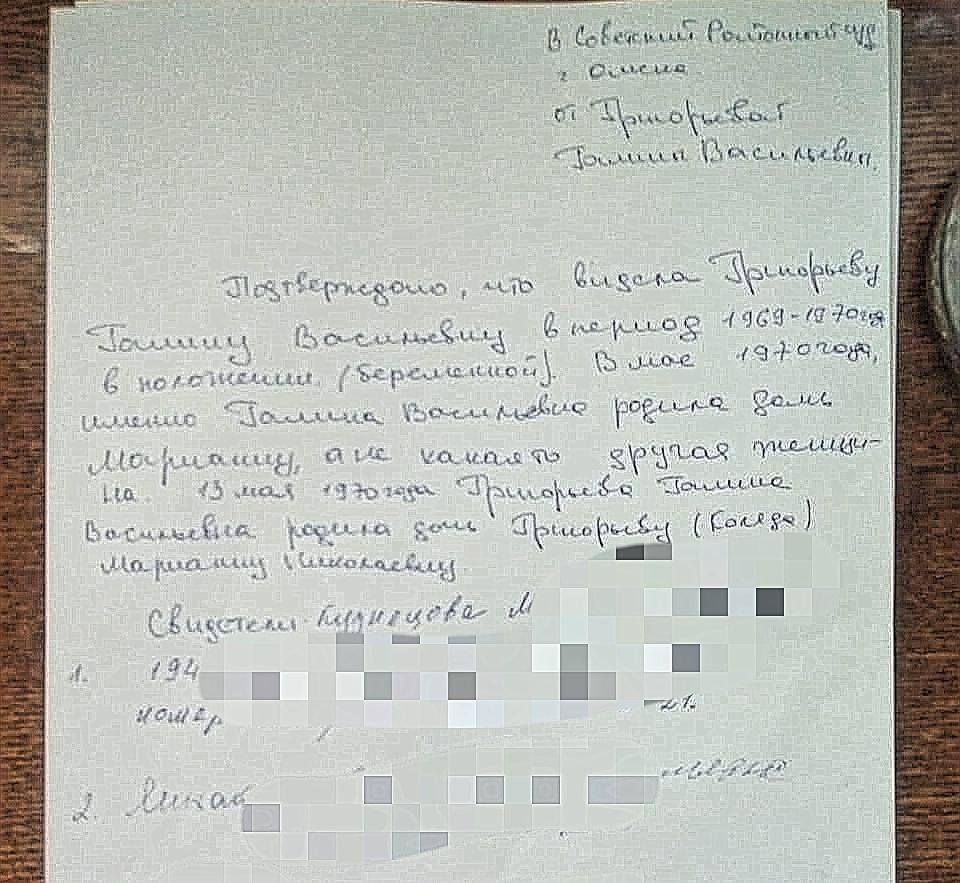 В Советский Районный суд
г Омска
от Григорьевой
Галины Васильевны.
Подтверждаю, что видела Григорьеву
Галину Васильевну в период 1969-1970 года
в положении (беременной). В мае 1970 года,
именно Галина Васильевна родила дочь
Марианну, а не какая то другая женщи-
на. 13 мая 1970 года Григорьева Галина
Васильевна родила дочь Григорьеву (Коледа)
Марианну Николаевну.
Свидетели Кузнецова М
1. 194
номер
2.